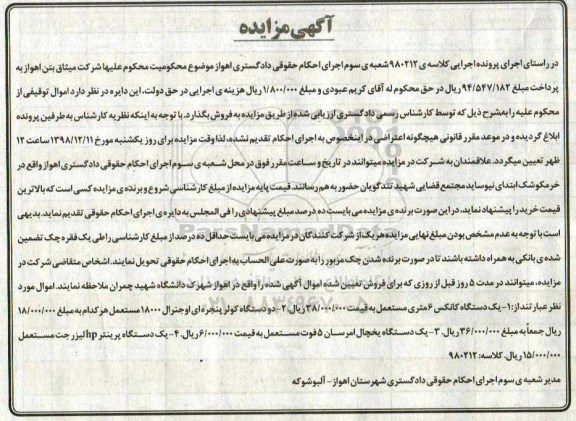 آگهی مزایده
در راستای اجرای پرونده اجرایی کلاسه ی ۹۸۰۲۱۲ شعبه ی سوم اجرای احکام حقوقی دادگستری اهواز موضوع محکومیت محکوم علیها شرکت میثاق بتن اهواز به
پرداخت مبلغ ۹۴/۵۴۷/۱۸۲ ریال در حق محکوم له آقای کریم عبودی و مبلغ ۱/۸۰۰/۰۰۰ ریال هزینه ی اجرایی در حق دولت، این دایره در نظر دارد اموال توقیفی از
محکوم علیه را به شرح ذیل که توسط کارشناس رسمی دادگستری ارزیابی شده از طریق مزایده به فروش بگذارد. با توجه به اینکه نظریه کارشناس به طرفین پرونده
ابلاغ گردیده و در موعد مقرر قانونی هیچگونه اعتراضی در اینخصوص به اجرای احکام تقدیم نشده، لذا وقت مزایده برای روز یکشنبه مورخ ۱۳۹۸/۱۲/۱۱ ساعت ۱۲
ظهر تعیین میگردد. علاقمندان به شرکت در مزایده میتوانند در تاریخ و ساعت مقرر فوق در محل شعبه ی سوم اجرای احکام حقوقی دادگستری اهواز واقع در
خرمکوشک ابتدای نیوساید مجتمع قضایی شهید تندگویان حضور به هم رسانند. قیمت پایه مزایده از مبلغ کارشناسی شروع و برنده ی مزایده کسی است که بالاترین
قیمت خرید را پیشنهاد نماید. در این صورت برنده ی مزایده می بایست ده درصد مبلغ پیشنهادی را فی المجلس به دایره ی اجرای احکام حقوقی تقدیم نماید. بدیهی
است با توجه به عدم مشخص بودن مبلغ نهایی مزایده هر یک از شرکت کنندگان در مزایده می بایست حداقل ده درصد از مبلغ کارشناسی را طی یک فقره چک تضمین
شده ی بانکی به همراه داشته باشند تا در صورت برنده شدن چک مزبور را به صورت علی الحساب به اجرای احکام حقوقی تحویل نمایند. اشخاص متقاضی شرکت در
مزایده، میتوانند در مدت ۵ روز قبل از روزی که برای فروش تعیین شده اموال آگهی شده را واقع در اهواز شهرک دانشگاه شهید چمران ملاحظه نمایند. اموال مورد
نظر عبارتنداز: ۱- یک دستگاه کانکس ۶ متری مستعمل به قیمت ۳۸/۰۰۰/۰۰۰ ریال. ۲- دو دستگاه کولر پنجره ای اوجنرال ۱۸۰۰۰ مستعمل هر کدام به مبلغ ۱۸/۰۰۰/۰۰۰
ریال جمعاً به مبلغ ۳۶/۰۰۰/۰۰۰ ریال. ۳- یک دستگاه یخچال امرسان ۵ فوت مستعمل به قیمت ۶/۰۰۰/۰۰۰ ریال. ۴- یک دستگاه پرینتر hp لیزر جت مستعمل
۱۵/۰۰۰/۰۰۰ ریال. کلاسه: ۹۸۰۲۱۲
مدیر شعبه ی سوم اجرای احکام حقوقی دادگستری شهرستان اهواز - آلبوشوکه